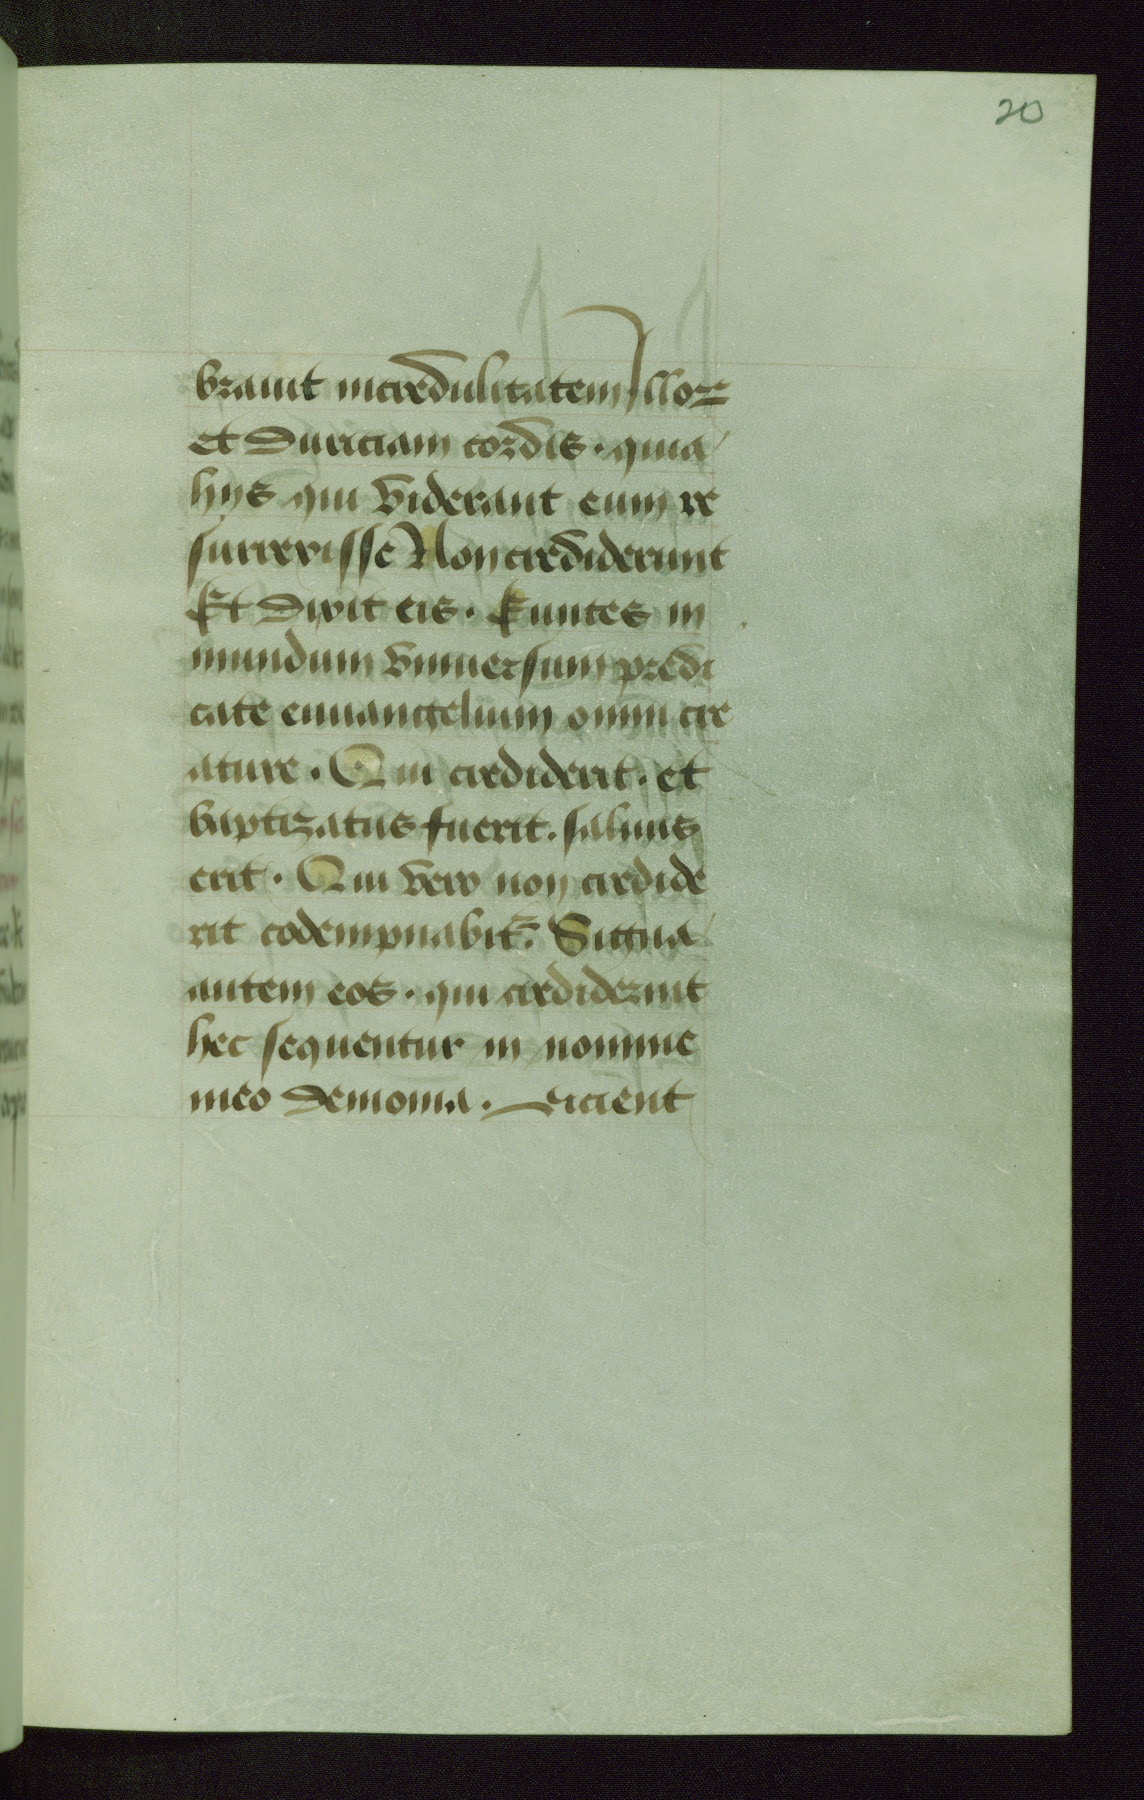 20
brauit incredulitatem illoꝝ
et duriciam cordis · quia
hijs qui viderant eum re
surrexisse Non crediderunt
Et dixit eis · Euntes in
mundum vniuersum predi
cate euuangelium omni cre
ature · Qui crediderit · et
baptizatus fuerit · saluus
erit · Qui vero non credide
rit codempnabit᷑ · Signa
autem eos · qui crediderint
hec sequentur in nomine
meo demonia · eicient